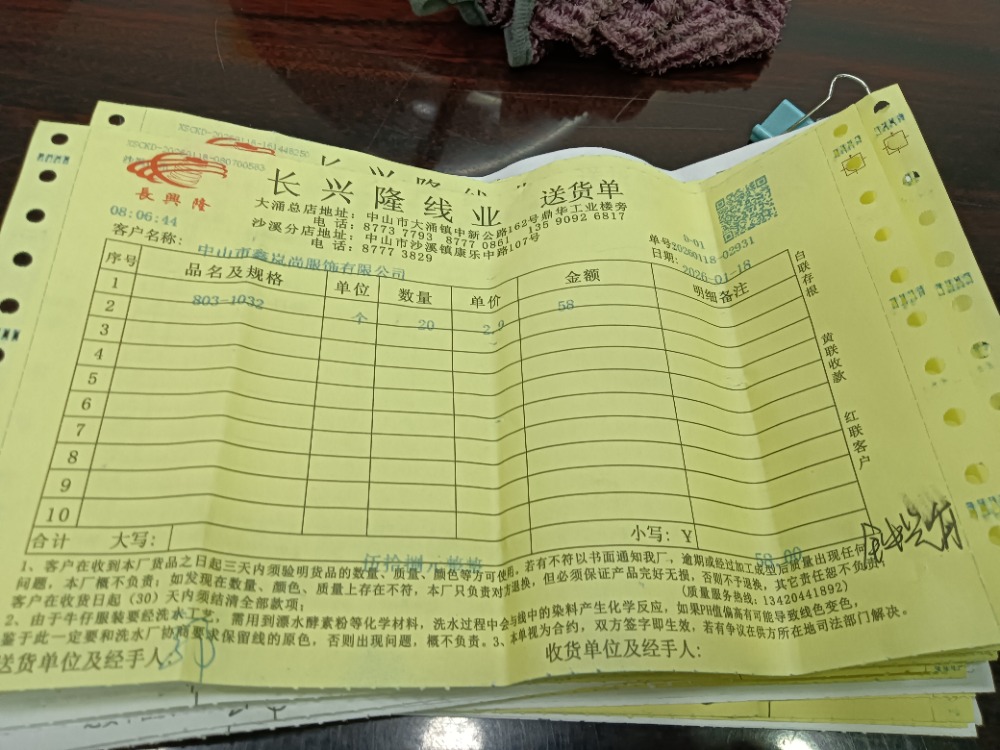 XSCKD-20260118-161448250
XSCKD-20260118-080700583
長興隆
长兴隆线业 送货单
大涌总店地址：中山市大涌镇中新公路162号鼎华工业楼旁
电话：8773 7793 8777 0861 135 9092 6817
沙溪分店地址：中山市沙溪镇康乐中路107号
电话：8777 3829
08:06:44
9-01
单号20260118-02931
客户名称：中山市鑫岚尚服饰有限公司
日期：2026-01-18
序号 品名及规格 单位 数量 单价 金额 明细备注
1 803-1032 个 20 2.9 58
2
3
4
5
6
7
8
9
10
合计 大写： 伍拾捌元整 小写：¥ 58.00
白联存根
黄联收款
红联客户
1、客户在收到本厂货品之日起三天内须验明货品的数量、质量、颜色等方可使用，若有不符以书面通知我厂，逾期或经过加工成型后质量出现任何
问题，本厂概不负责；如发现在数量、颜色、质量上存在不符，本厂只负责对方退换，但必须保证产品完好无损，否则不予退换，其它责任恕不负责；
客户在收货日起（30）天内须结清全部款项； （质量服务热线；13420441892）
2、由于牛仔服装要经洗水工艺，需用到漂水酵素粉等化学材料，洗水过程中会与线中的染料产生化学反应，如果PH值偏高有可能导致线色变色，
鉴于此一定要和洗水厂协商要求保留线的原色，否则出现问题，概不负责。3、本单视为合约，双方签字即生效，若有争议在供方所在地司法部门解决。
送货单位及经手人 收货单位及经手人：